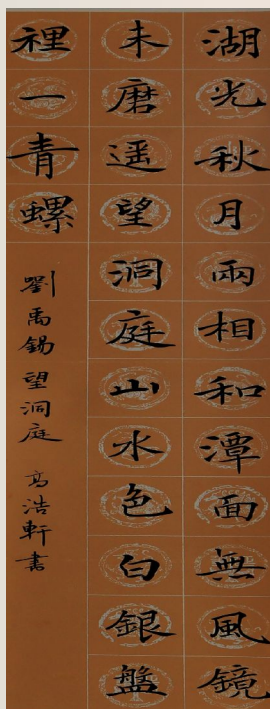 湖光秋月兩相和潭面無風鏡
未磨遥望洞庭山水色白銀盤
裡一青螺
劉禹錫望洞庭 高浩軒書